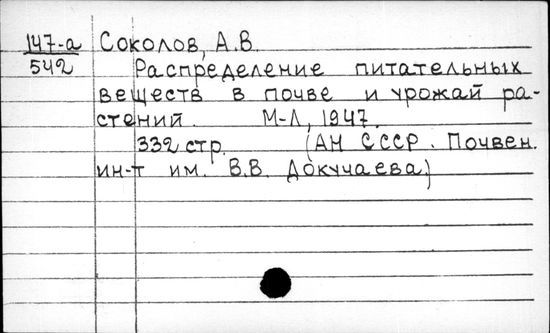 147-а Соколов, А.В.
542 Распределение питательных
веществ в почве и урожай ра-
стений. М-Л, 1947.
332 стр. (АН СССР. Почвен.
ин-т им. В.В. Докучаева)